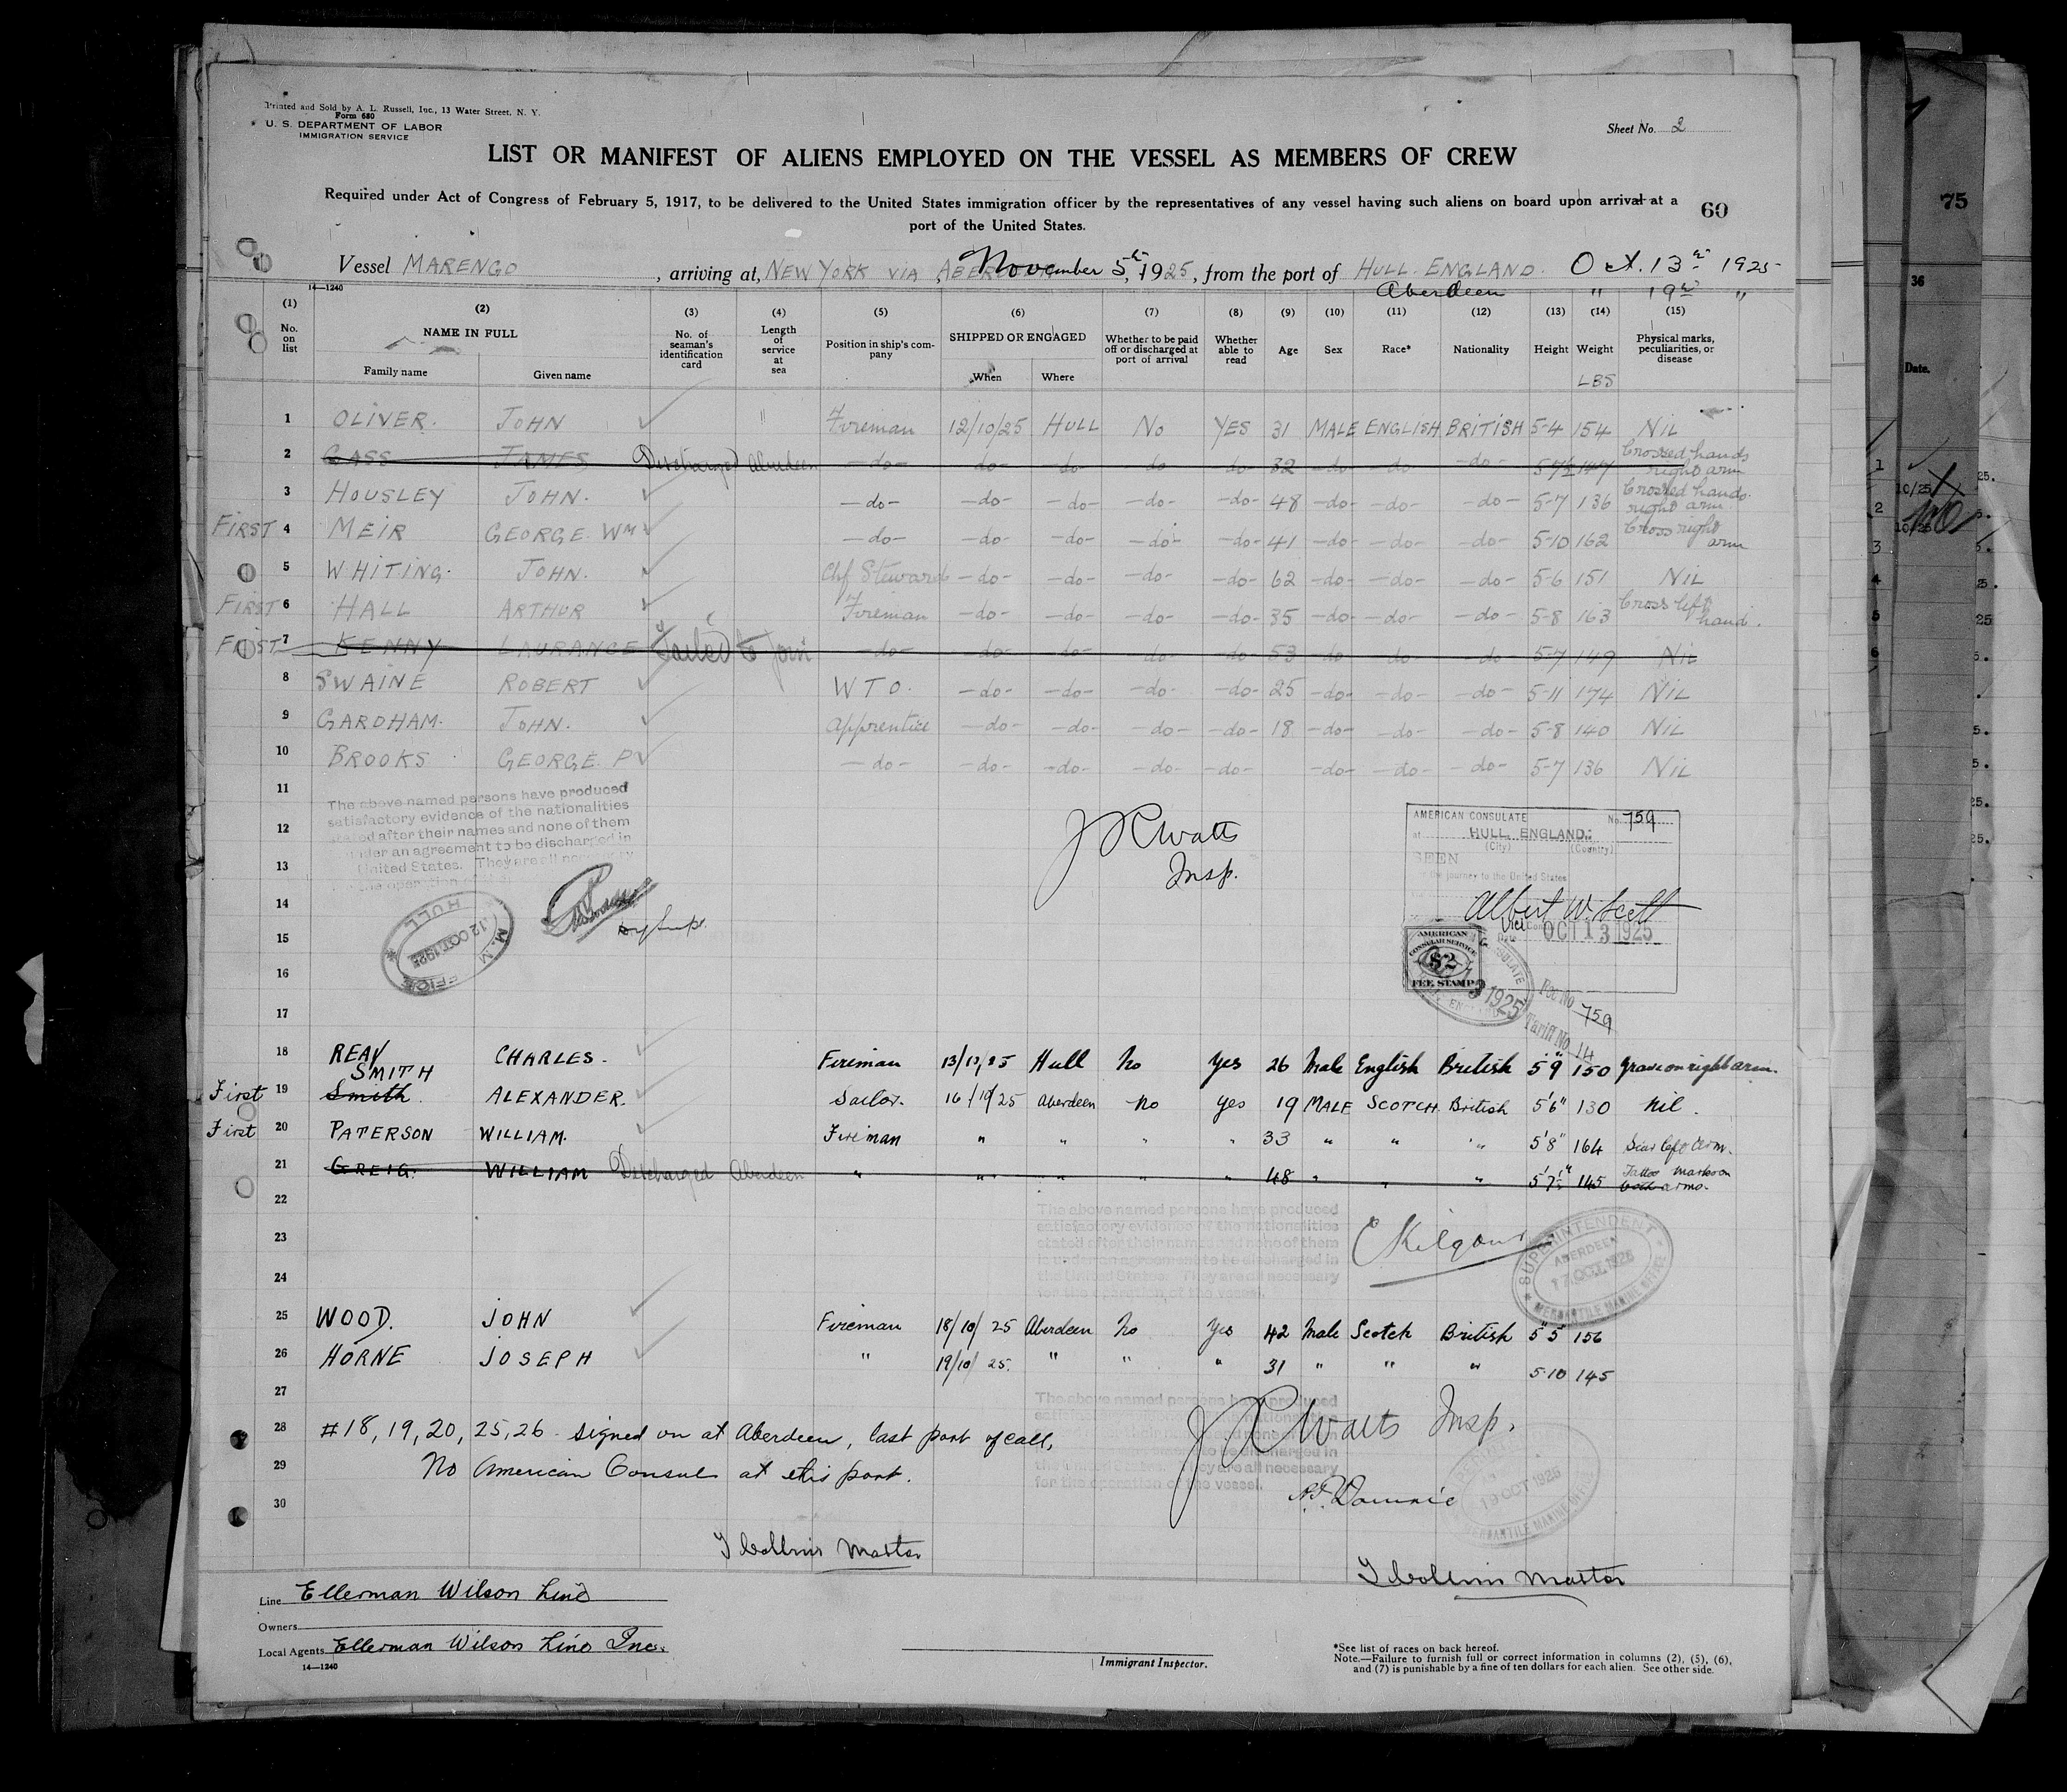 Printed and Sold by A. L. Russell, Inc., 13 Water Street, N. Y.
Form 680
U. S. DEPARTMENT OF LABOR
IMMIGRATION SERVICE
Sheet No. 2
LIST OR MANIFEST OF ALIENS EMPLOYED ON THE VESSEL AS MEMBERS OF CREW
Required under Act of Congress of February 5, 1917, to be delivered to the United States immigration officer by the representatives of any vessel having such aliens on board upon arrival at a
port of the United States.
60
Vessel MARENGO, arriving at, NEW YORK VIA ABERDEEN November 5th, 1925, from the port of HULL. ENGLAND. Oct. 13th 1925
Aberdeen " 19th "
14—1240
(1) (2) (3) (4) (5) (6) (7) (8) (9) (10) (11) (12) (13) (14) (15)
No. on list NAME IN FULL No. of seaman's identification card Length of service at sea Position in ship's company SHIPPED OR ENGAGED Whether to be paid off or discharged at port of arrival Whether able to read Age Sex Race* Nationality Height Weight Physical marks, peculiarities, or disease
Family name Given name When Where LBS
1 OLIVER. JOHN Fireman 12/10/25 HULL No YES 31 MALE ENGLISH BRITISH 5-4 154 NIL
2 CASS JAMES Discharged Aberdeen —do— —do— do do —do— 32 —do— do —do— 5-7½ 147 Crossed hands right arm
3 HOUSLEY JOHN. —do— —do— —do— —do— —do— 48 —do— —do— —do— 5-7 136 Crossed hands right arm
FIRST 4 MEIR GEORGE WM —do— —do— —do— —do— —do— 41 —do— —do— —do— 5-10 162 Cross right arm
5 WHITING. JOHN. Chf Steward —do— —do— —do— —do— 62 —do— —do— —do— 5-6 151 NIL
FIRST 6 HALL ARTHUR Fireman —do— —do— —do— —do— 35 —do— —do— —do— 5-8 163 Cross left hand.
FIRST 7 KENNY LAURANCE Failed to join —do— —do— —do— do —do— 53 —do— do —do— 5-7 149 NIL
8 SWAINE ROBERT W T O. —do— —do— —do— —do— 25 —do— —do— —do— 5-11 174 NIL
9 GARDHAM. JOHN. Apprentice —do— —do— —do— —do— 18 —do— —do— —do— 5-8 140 NIL
10 BROOKS GEORGE P —do— —do— —do— —do— —do— —do— —do— —do— 5-7 136 NIL
11
The above named persons have produced
satisfactory evidence of the nationalities
stated after their names and none of them
under an agreement to be discharged in
United States. They are all necessary
the operation of
12
J R Watts
Insp.
13
14
15
16
17
HULL
12 OCT 1925
M.M. OFFICE
AMERICAN CONSULATE No. 759
at HULL, ENGLAND.
(City) (Country)
SEEN
journey to the United States
Albert W. Scott
Vice Con
Date OCT 13 1925
AMERICAN
CONSULAR SERVICE
$2
FEE STAMP
1925
Fee No 759
Tariff No 14
18 REAY CHARLES. Fireman 13/10/25 Hull No Yes 26 Male English British 5'9" 150 Grave on right arm.
SMITH
First 19 Smith ALEXANDER. Sailor. 16/10/25 Aberdeen No Yes 19 MALE SCOTCH British 5'6" 130 Nil.
First 20 PATERSON WILLIAM. Fireman " " " " 33 " " " 5'8" 164 Scar left arm.
21 GREIG. WILLIAM Discharged Aberdeen " " " " " 48 " " " 5'7½" 145 Tattoo marks on both arms.
22
The above named persons have produced
satisfactory evidence of the nationalities
stated after their names and none of them
is under an agreement to be discharged in
the United States. They are all necessary
for the operation of the vessel.
23
C Kilgour
SUPERINTENDENT
ABERDEEN
17 OCT. 1925
MERCANTILE MARINE OFFICE
24
25 WOOD. JOHN Fireman 18/10/25 Aberdeen No Yes 42 Male Scotch British 5"5 156
26 HORNE JOSEPH " 19/10/25. " " " 31 " " " 5-10 145
27
The above named persons have produced
28 #18, 19, 20, 25, 26 signed on at Aberdeen, last port of call,
J R Watts Insp.
29 No American Consul at this port.
to be discharged in
They are all necessary
for the operation of the vessel.
19 OCT 1925
MERCANTILE MARINE OFFICE
30
Collins Master
Collins Master
Line Ellerman Wilson Line
Owners
Local Agents Ellerman Wilson Line Inc.
14—1240
Immigrant Inspector.
*See list of races on back hereof.
Note.—Failure to furnish full or correct information in columns (2), (5), (6),
and (7) is punishable by a fine of ten dollars for each alien. See other side.
75
36
Date.
1
2
3
4
5
6